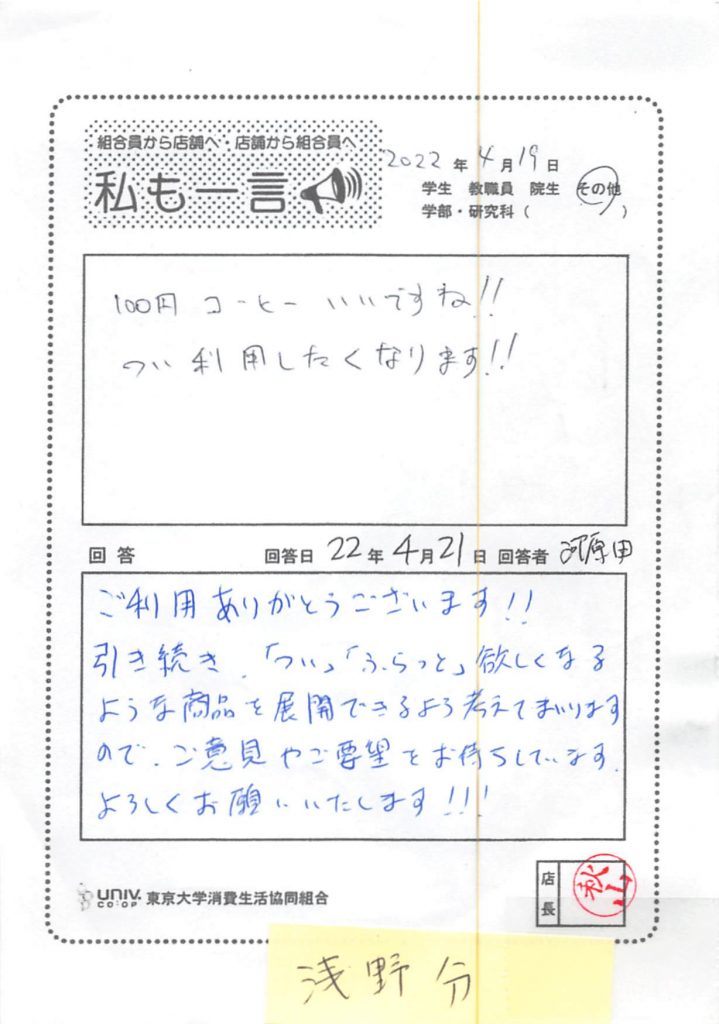 組合員から店舗へ・店舗から組合員へ
私も一言
2022年4月19日
学生 教職員 院生 その他
学部・研究科( )
100円コーヒーいいですね!!
つい利用したくなります!!
回答 回答日 22年4月21日 回答者 河原田
ご利用ありがとうございます!!
引き続き、「つい」「ふらっと」欲しくなる
ような商品を展開できるよう考えてまいります
ので、ご意見やご要望をお待ちしています。
よろしくお願いいたします!!!
UNIV. CO-OP 東京大学消費生活協同組合
店長 秋山
浅野分